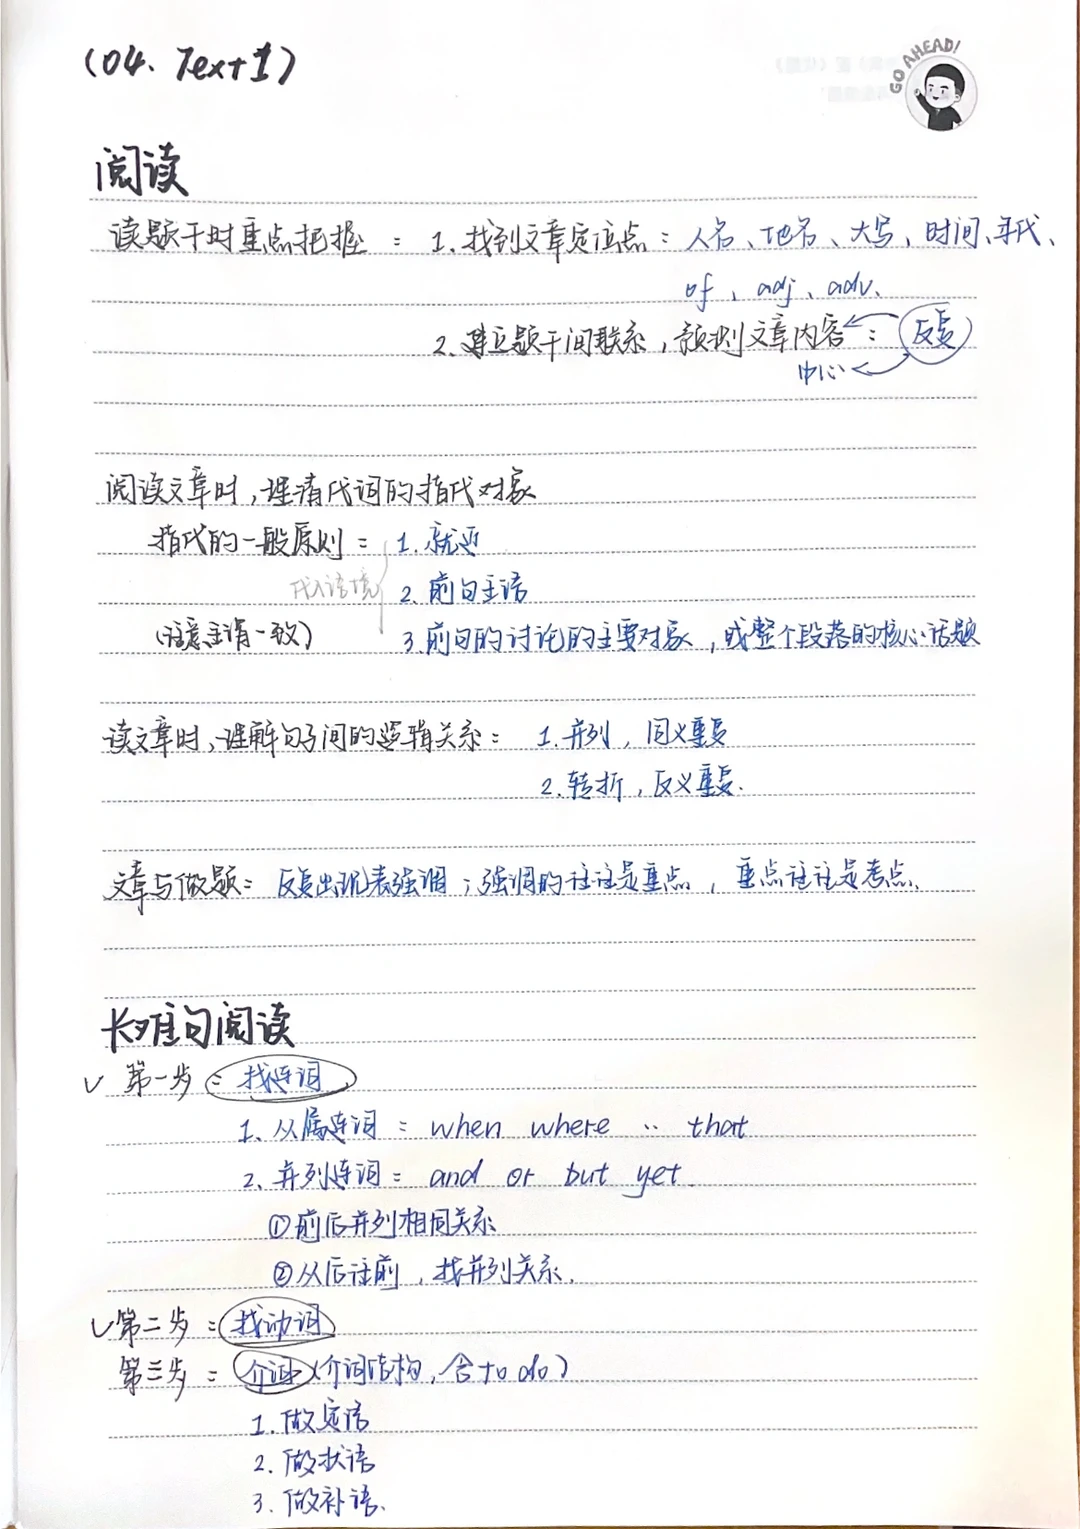 (04. Text 1)
GO AHEAD!
阅读
读题干时重点把握：1. 找到文章定位点：人名、地名、大写、时间、年代、
of、adj、adv、
2. 建立题干间联系，预测文章内容：反复
中心
阅读文章时，理清代词的指代对象
指代的一般原则：1. 就近
代入语境 2. 前句主语
(注意主谓一致) 3. 前句的讨论的主要对象，或整个段落的核心话题
读文章时，理解句子间的逻辑关系：1. 并列，同义重复
2. 转折，反义重复.
文章与做题：反复出现表强调；强调的往往是重点，重点往往是考点.
长难句阅读
✓ 第一步：找连词
1. 从属连词：when where ·· that
2. 并列连词：and or but yet.
①前后并列相同关系
②从后往前，找并列关系.
✓ 第二步：找动词
第三步：介词(介词结构，含 to do)
1. 做定语
2. 做状语
3. 做补语.